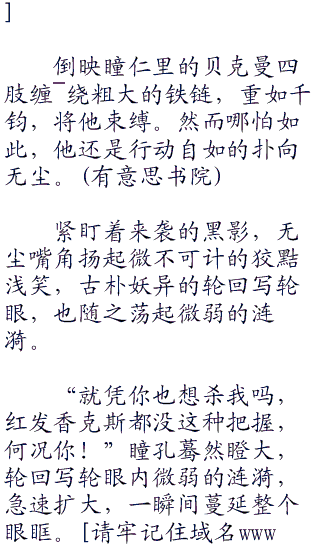 ]
倒映瞳仁里的贝克曼四
肢缠¯绕粗大的铁链，重如千
钧，将他束缚。然而哪怕如
此，他还是行动自如的扑向
无尘。(有意思书院)
紧盯着来袭的黑影，无
尘嘴角扬起微不可计的狡黠
浅笑，古朴妖异的轮回写轮
眼，也随之荡起微弱的涟
漪。
“就凭你也想杀我吗，
红发香克斯都没这种把握，
何况你！”瞳孔蓦然瞪大，
轮回写轮眼内微弱的涟漪，
急速扩大，一瞬间蔓延整个
眼眶。[请牢记住域名www